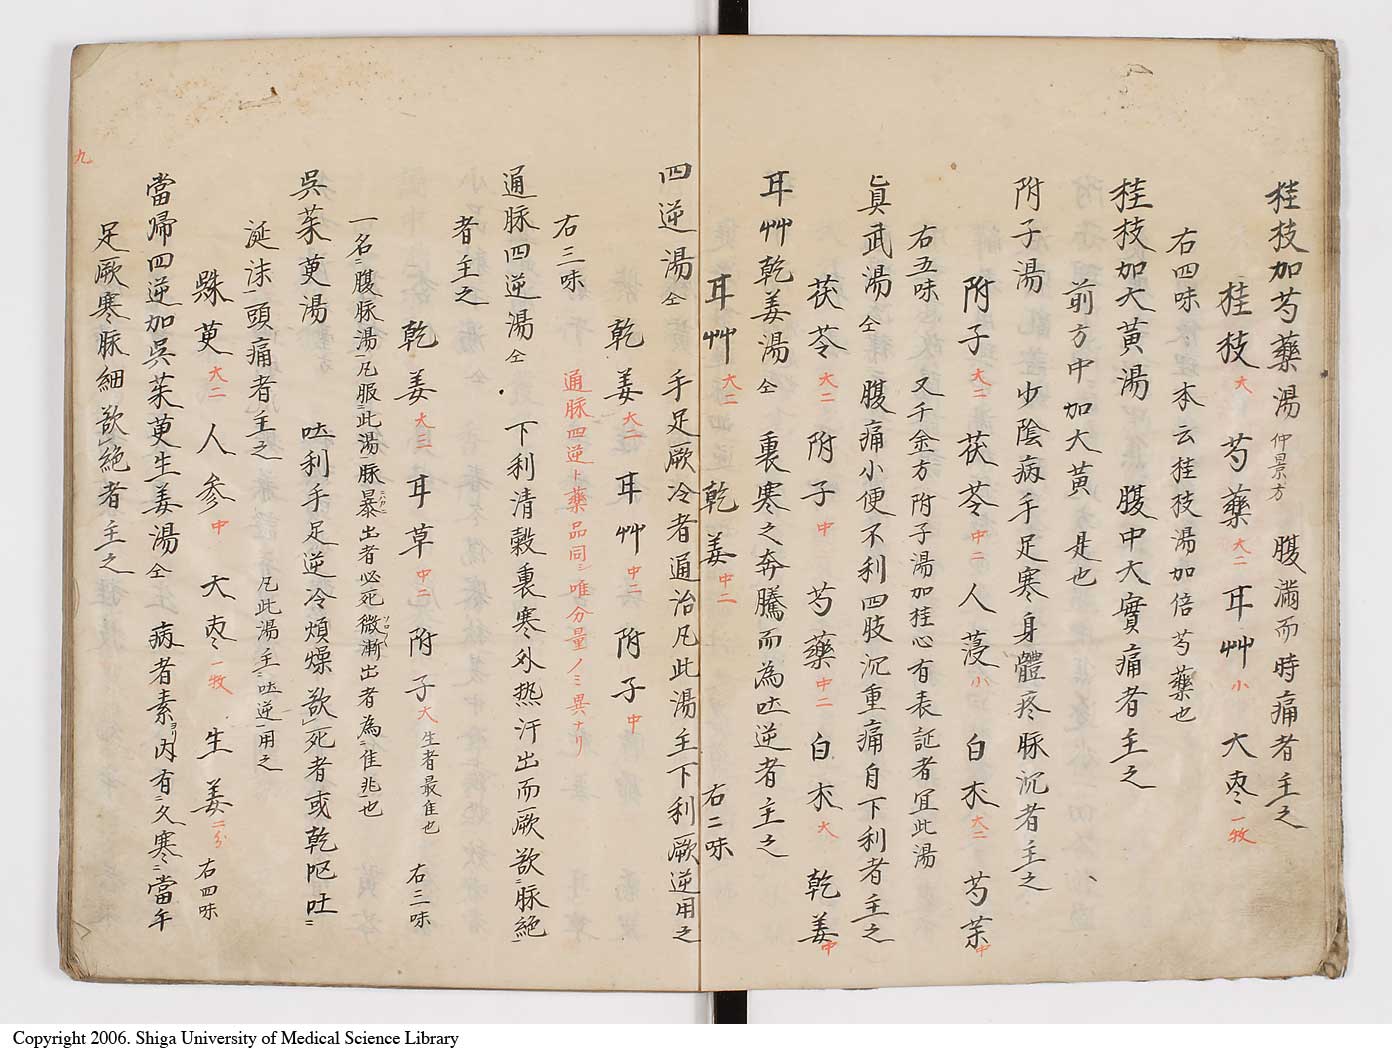 桂枝加芍藥湯 仲景方 腹滿而時痛者主之
桂枝 大 芍藥 大二 耳艸 小 大枣 一牧
右四味 本云桂枝湯加倍芍藥也
桂枝加大黃湯 腹中大實痛者主之
前方中加大黃是也
附子湯 少陰病手足寒身體疼脉沉者主之
附子 大二 茯苓 中二 人葠 小 白朮 大二 芍茱 中
右五味 又千金方附子湯加桂心有表証者宜此湯
眞武湯 仝 腹痛小便不利四肢沉重痛自下利者主之
茯苓 大二 附子 中 芍藥 中二 白朮 大 乾姜 中
耳艸乾姜湯 仝 裏寒之奔騰而為吐逆者主之
耳艸 大二 乾姜 中二 右二味
四逆湯 仝 手足厥冷者通治凡此湯主下利厥逆用之
乾姜 大二 耳艸 中二 附子 中
右三味 通脉四逆ト藥品同シ唯分量ノミ異ナリ
通脉四逆湯 仝 下利清穀裏寒外热汗出而厥欲ニ脉絶一
者主之
乾姜 大三 耳草 中二 附子 大 生者最隹也 右三味
一名ニ腹脉湯一凡服ニ此湯脉暴出者必死微漸出者為ニ隹兆一也
吳茱萸湯 吐利手足逆冷煩燥欲死者或乾呕吐ニ
涎沫一頭痛者主之 凡此湯主ニ吐逆一用之
茱萸 大二 人参 中 大枣 一牧 生姜 二分 右四味
當帰四逆加吳茱萸生姜湯 仝 病者素ヨリ内有ニ久寒一當年
足厥寒脉細欲絶者主之
九
Copyright 2006. Shiga University of Medical Science Library